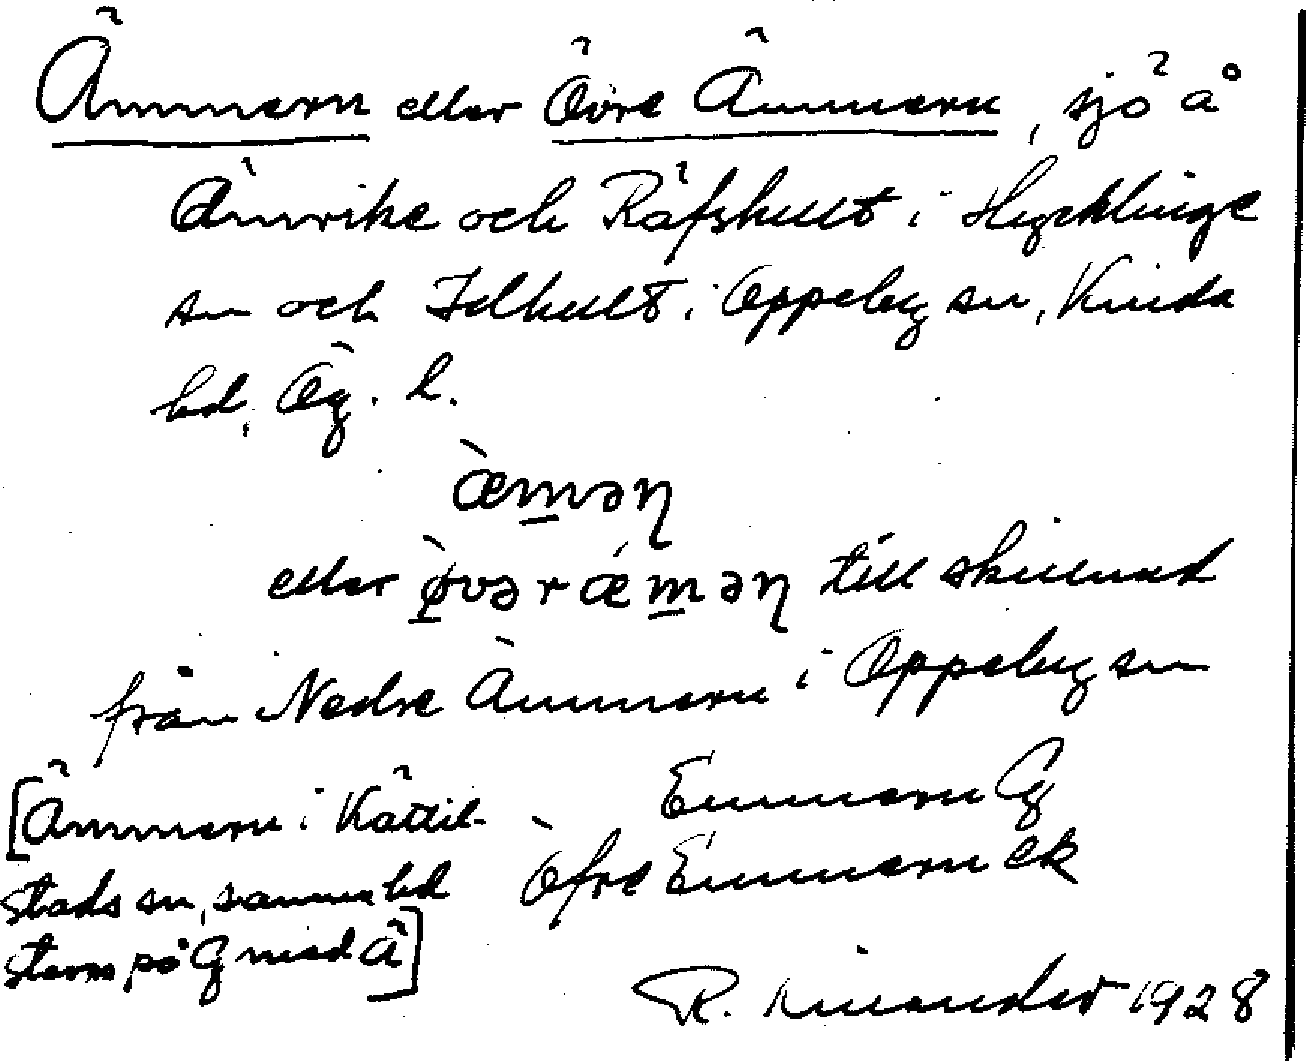 Ämmern eller Övre Ämmern, sjö å
Ämrike och Räfshult i Hycklinge
sn och Idhult i Oppeby sn, Kinda
hd, Ög. l.
æ̀mən̢
eller ø̀vərǽmən̢ till skillnad
från Nedre Ämmern i Oppeby sn
[Ämmern i Kättil-
stads sn, samma hd
står på G med Ä]
Emmern G
Öfre Emmern ek
R. Linander 1928